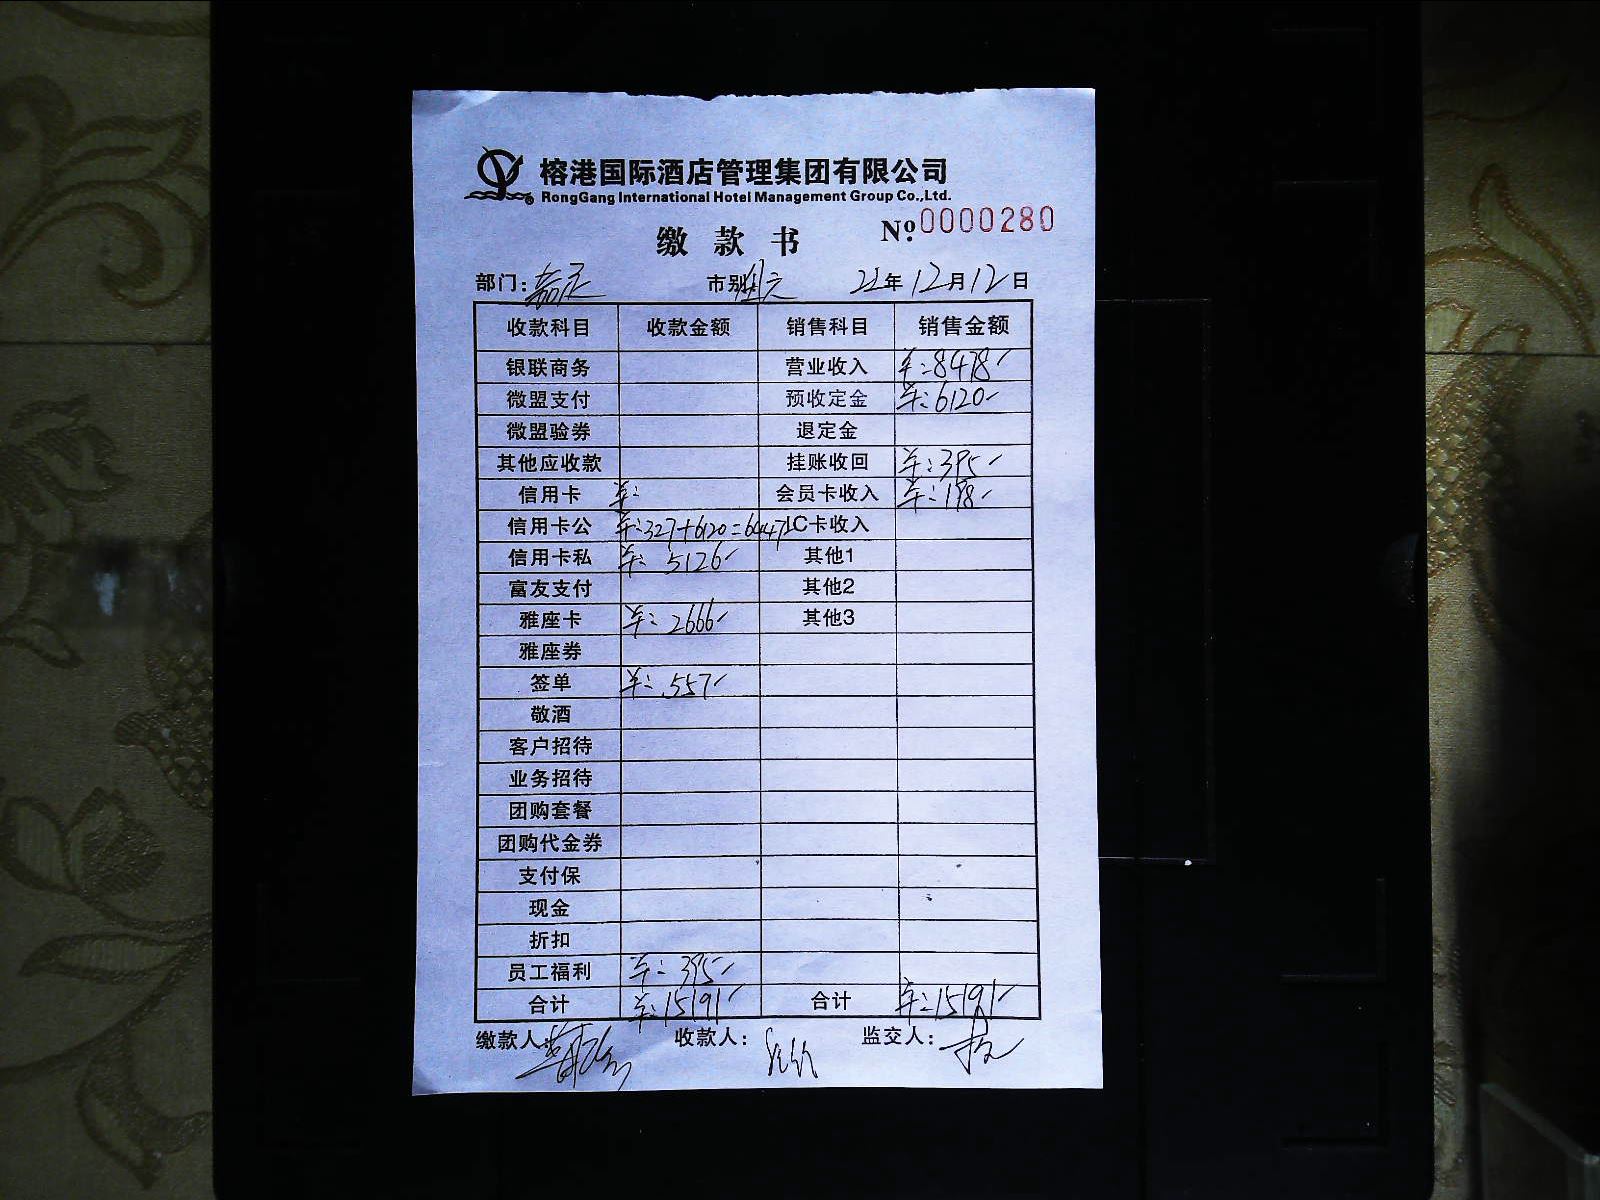 榕港国际酒店管理集团有限公司
RongGang International Hotel Management Group Co.,Ltd.
缴款书 Nº.0000280
部门: 市别 22年12月12日
收款科目 收款金额 销售科目 销售金额
银联商务 营业收入 ¥:8478/
微盟支付 预收定金 ¥:6120/
微盟验券 退定金
其他应收款 挂账收回 ¥:395/
信用卡 ¥: 会员卡收入 ¥:198/
信用卡公 ¥:327+6120=6447/ IC卡收入
信用卡私 ¥:5126/ 其他1
富友支付 其他2
雅座卡 ¥:2666/ 其他3
雅座券
签单 ¥:557/
敬酒
客户招待
业务招待
团购套餐
团购代金券
支付保
现金
折扣
员工福利 ¥:395/
合计 ¥:15191/ 合计 ¥:15191/
缴款人: 收款人: 监交人: